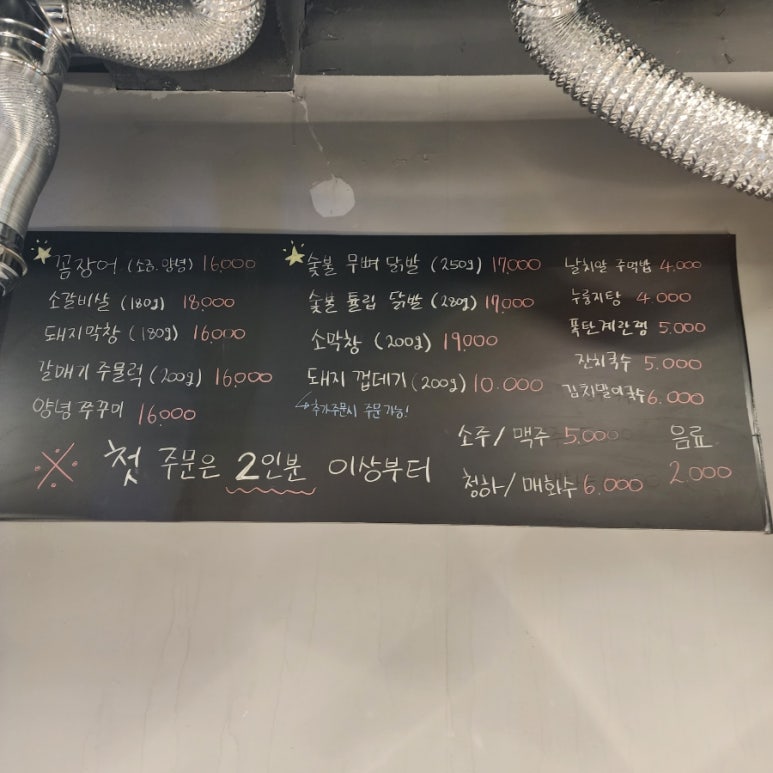 꼼장어 (소금.양념) 16,000
소갈비살 (180g) 18,000
돼지막창 (180g) 16,000
갈매기 주물럭 (200g) 16,000
양념 쭈꾸미 16,000
숯불 무뼈 닭발 (250g) 17,000
숯불 튤립 닭발 (280g) 17,000
소막창 (200g) 19,000
돼지 껍데기 (200g) 10.000
↳추가주문시 주문 가능!
날치알 주먹밥 4.000
누룽지탕 4.000
폭탄계란찜 5.000
잔치국수 5.000
김치말이국수 6.000
소주/맥주 5.000
청하/매화수 6.000
음료
2.000
※ 첫 주문은 2인분 이상부터